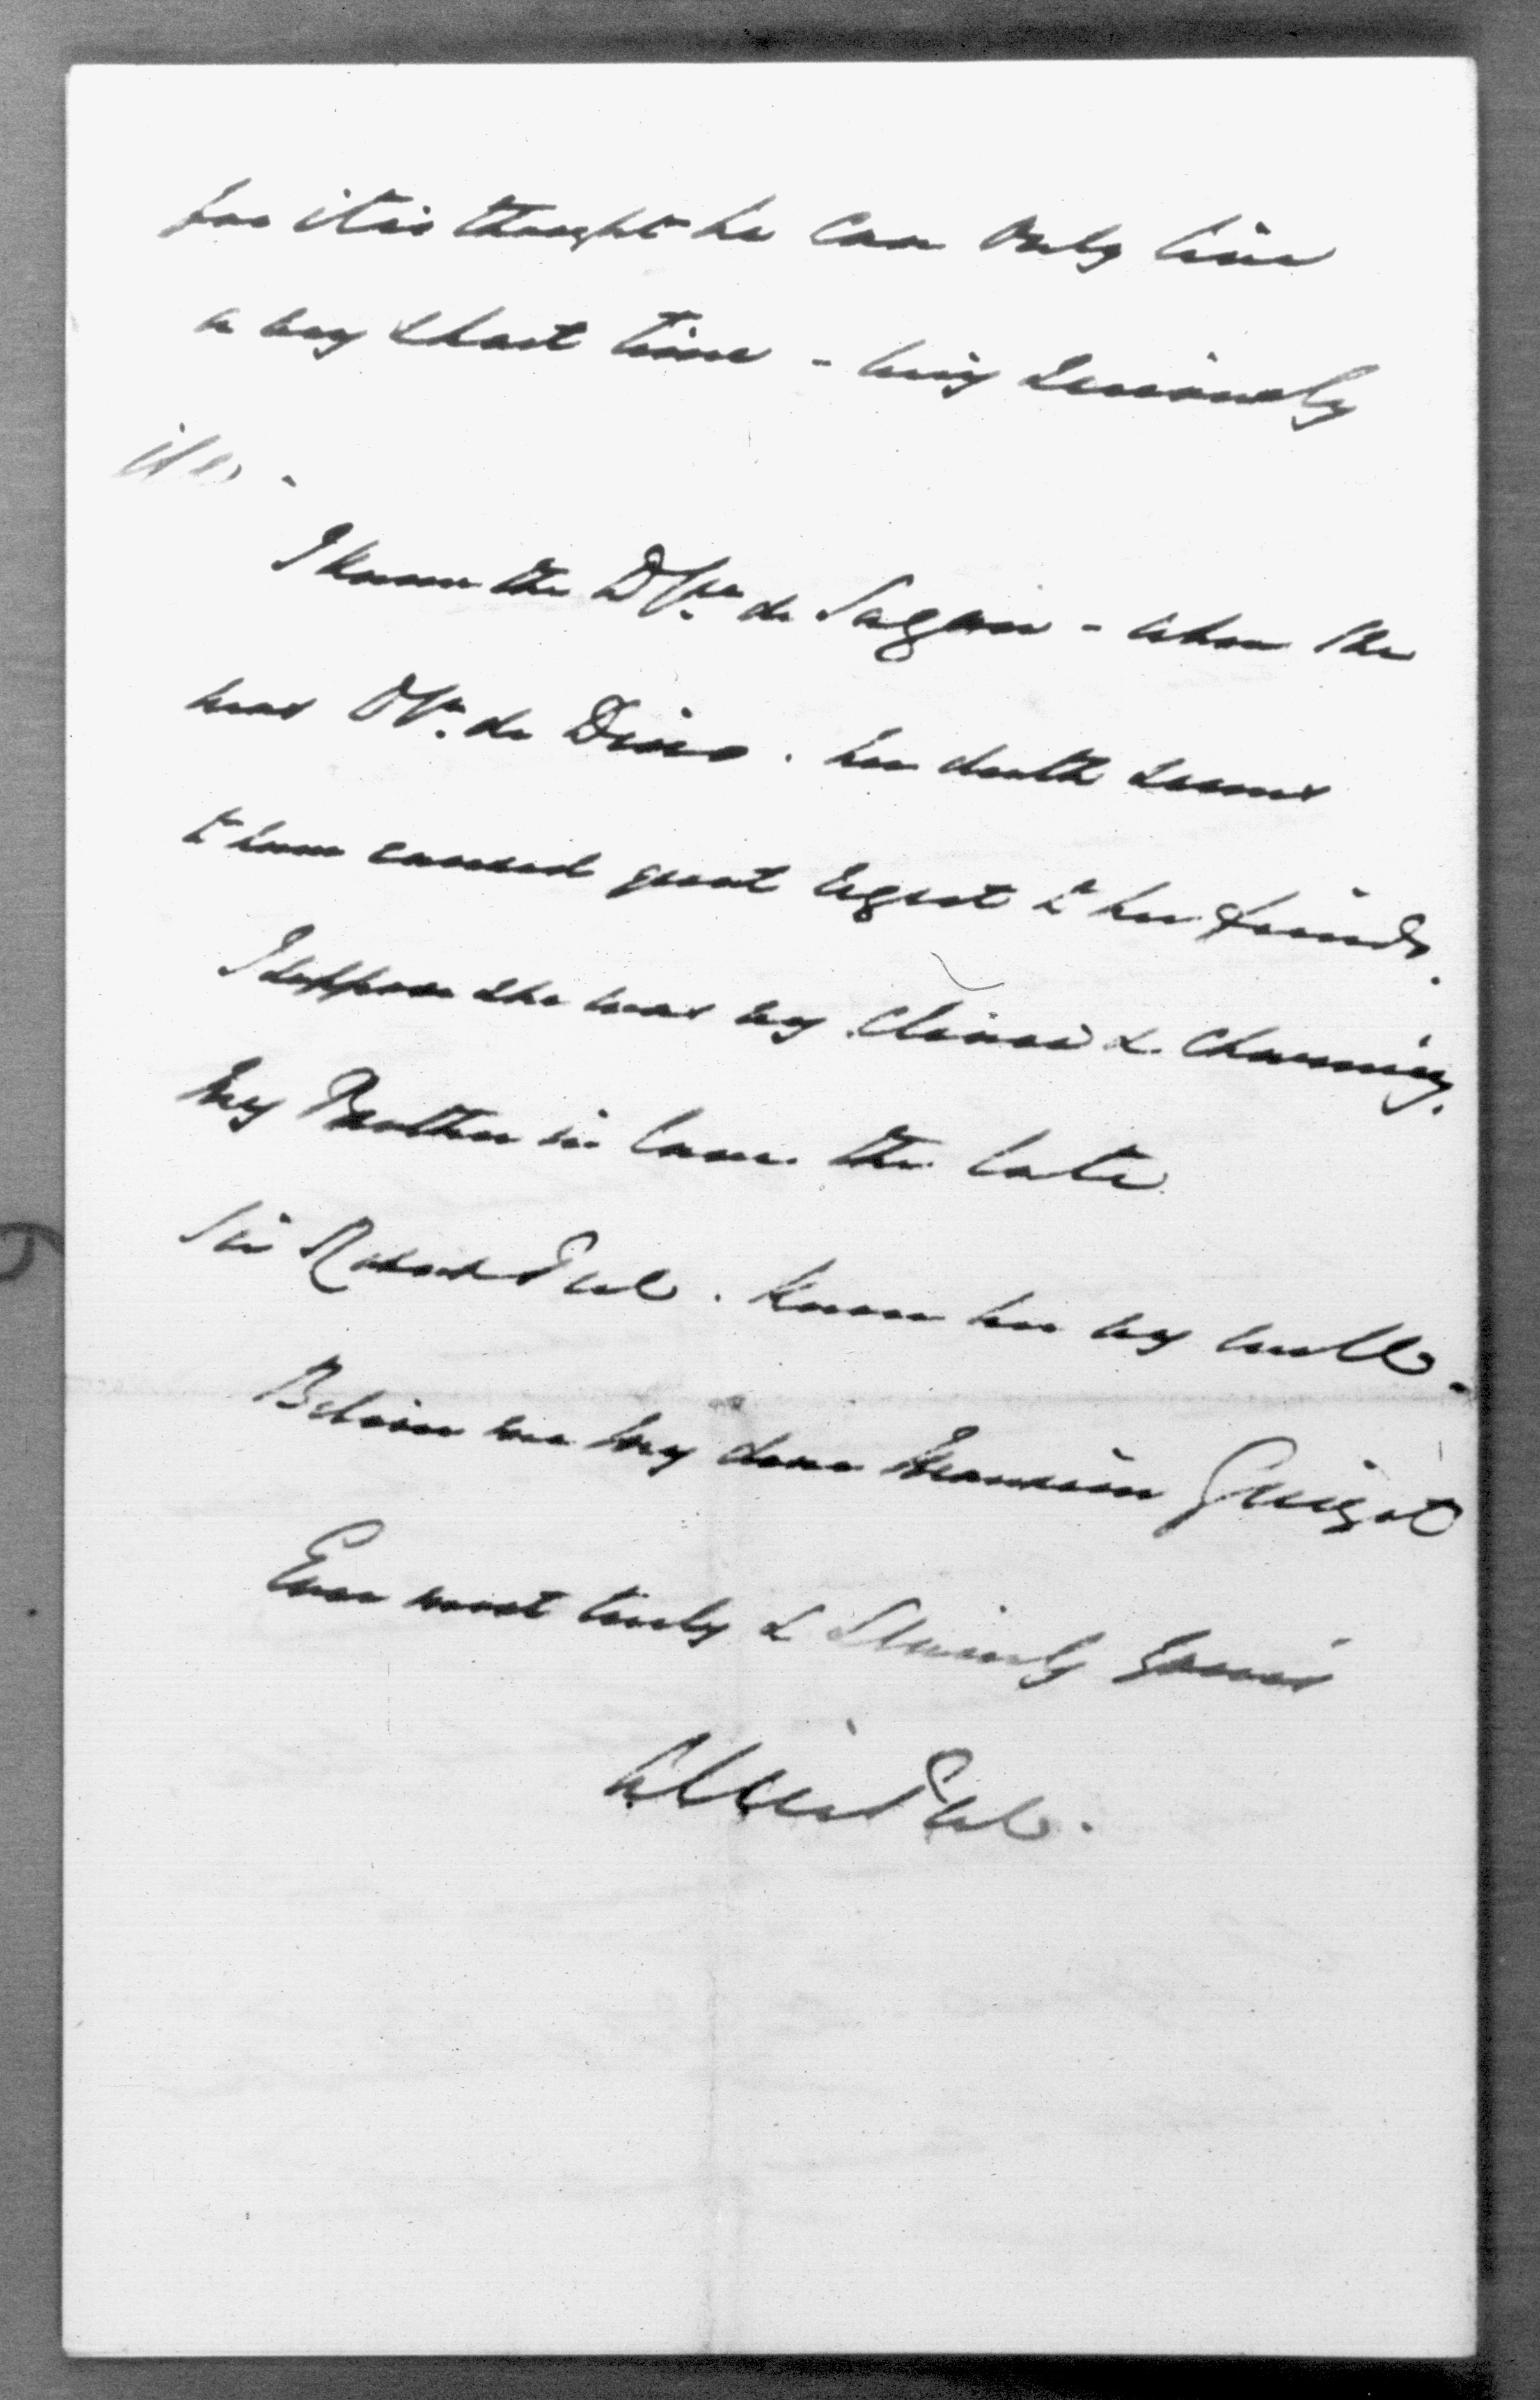 for it is thought he can only live
a very short time - being seriously
ill.
I knew the Dss de Sagan - when she
was Dss de Dino. her death seems
to have caused great regret to her friends.
I suppose she was very clever & charming.
My Brother in law. the late
Sir Robert Peel. knew her very well -
Believe me my dear Monsieur Guizot
Ever most truly & sincerely yours
Alice Peel.